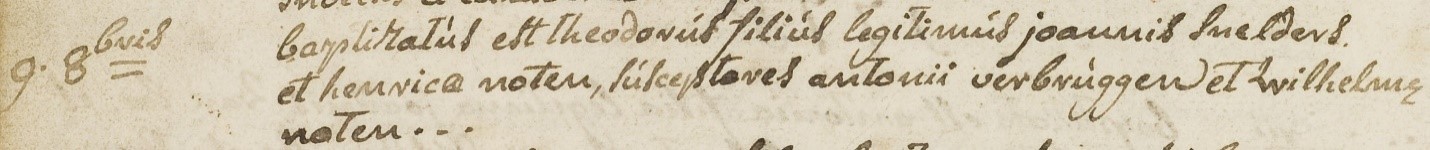 9. 8bris baptizatús est theodorús filiús legitimús joannis Snelders.
et henricæ noten, súsceptores antonii verbrùggen et wilhelmę
noten...